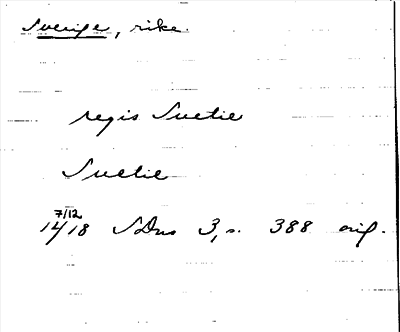 Sverige, rike.
regis Suetie
Suetie
14 7/12 18 SDns 3, s. 388 orig.